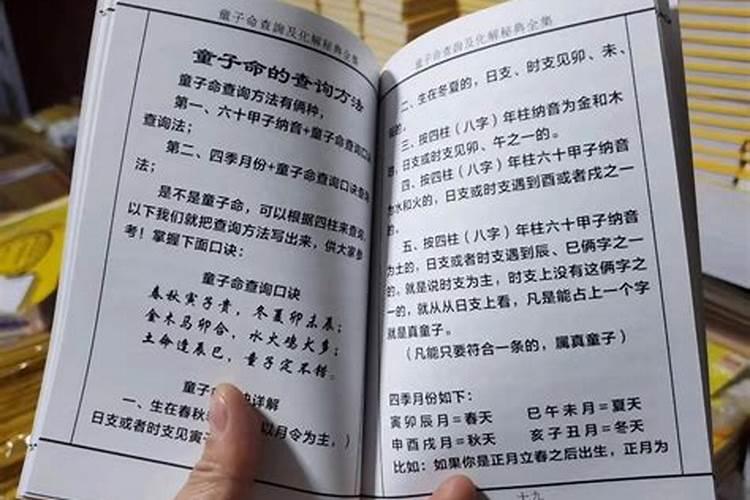 童子命查詢及化解秘典全集
童子命的查询方法
童子命查询方法有俩种，
第一、六十甲子纳音+童子命查询口诀
查询法；
第二、四季月份+童子命查询口诀查询
法；
是不是童子命，可以根据四柱来查询，
以下我们就把查询方法写出来，供大家参
考！掌握下面口诀：
童子命查询口诀
春秋寅子贵，冬夏卯未辰；
金木马卯合，水火鸡犬多；
土命逢辰巳，童子定不错。
童子 诀详解
一、生在春秋 以月令为主，）
日支或者时支见寅
童子命查詢及化解秘典全集
二、生在冬夏的，日支、时支见卯、未、
的。
三、按四柱（八字）年柱纳音为金和木
，日支或时支见卯、午之一的。
四、按四柱（八字）年柱六十甲子纳音
为水和火的，日支或时支遇到酉或者戌之一
的。
五、按四柱（八字）年柱六十甲子纳音
为土的，日支或者时支遇到辰、巳俩字之一
的，就是说时支为主，时支上没有这俩字之
一的，就从从日支上看，凡是能占上一个字
就是真童子。
（凡能只要符合一条的，属真童子）
四季月份如下：
寅卯辰月=春天 巳午未月=夏天
申酉戌月=秋天 亥子丑月=冬天
比如：如果你是正月立春之后出生，正月为
十九